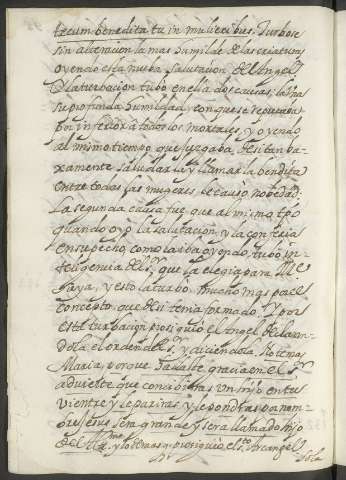 tecum benedita tu in mulieribus. Turbose
sin alteracion la mas humilde de las criaturas
oyendo esta nueba salutacion del Angel.
La turbacion tubo en ella dos causas: la una
su profunda humildad, con que se reputaba
por inferior a todos los mortales, y oyendo
al mismo tiempo, que juzgaba de si tan ba-
xamente saludarla y llamarla bendita
entre todas las mugeres le causo nobedad;
La segunda causa fue, que al mismo tpo
quando oyo la salutacion, y la conferia
en su pecho, como la iba oyendo, tubo in-
teligencia del Sr. que la elegia para Me
suya, y esto la turbo mucho mas por el
concepto, que de si tenia formado. Y por
esta turbacion prosiguio el Angel declaran-
dola el orden del Sr. y diciendola: No temas
Maria, porque hallaste gracia en el Sr.
advierte que concibiras un hijo en tu
vientre y le pariras y le pondras por nom-
bre Jesus sera grande y sera llamado hijo
del Altmo. y lo demas q prosiguio el Sto. Arcangel